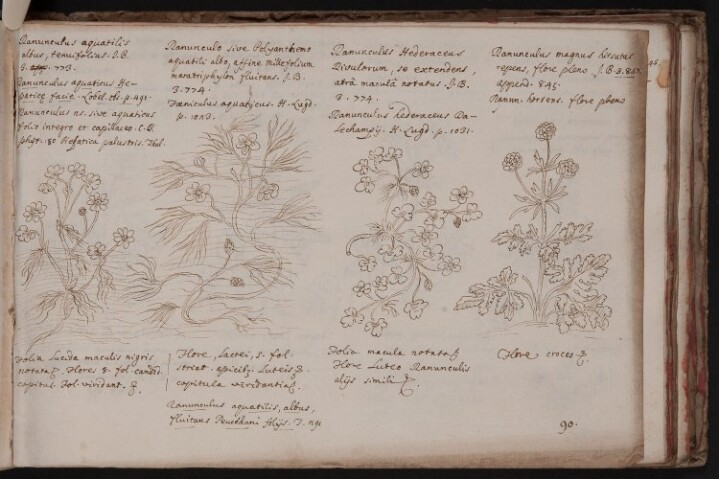 Ranunculus aquatilis
albus, tenuifolius. J.B.
3. 773.
Ranunculus aquaticus He-
paticæ facie. Lobel. p. 491.
Ranunculus aquaticus
folio integro et capillaceo. C.B.
Hepatica palustris.
Ranunculo sive Polyanthemo
aquatili albo, affine millefolium
maratriphylon fluitans. J.B.
3. 774.
Fæniculus aquaticus. H. Lugd.
p. 1023.
Ranunculus Hederaceus
Rivulorum, se extendens,
atrâ maculâ notatus J.B.
3. 774.
Ranunculus hederaceus Da-
Lechampij. H. Lugd. p. 1031.
Ranunculus magnus hirsutus
repens, flore pleno J.B.
append. 845.
Ranun. hortens. flore pleno
Folia Lucida maculis nigris
notata, Flores & fol candid.
capitul. Fol. viridant.
Flore, Lactei, 5. fol
striat. apicib; Luteis
capitula viridantia
Ranunculus aquatilis, albus,
fluitans Peucedani folijs.
Folia macula notata
Flore Luteo Ranunculis
alijs simili
Flore croceo
90.